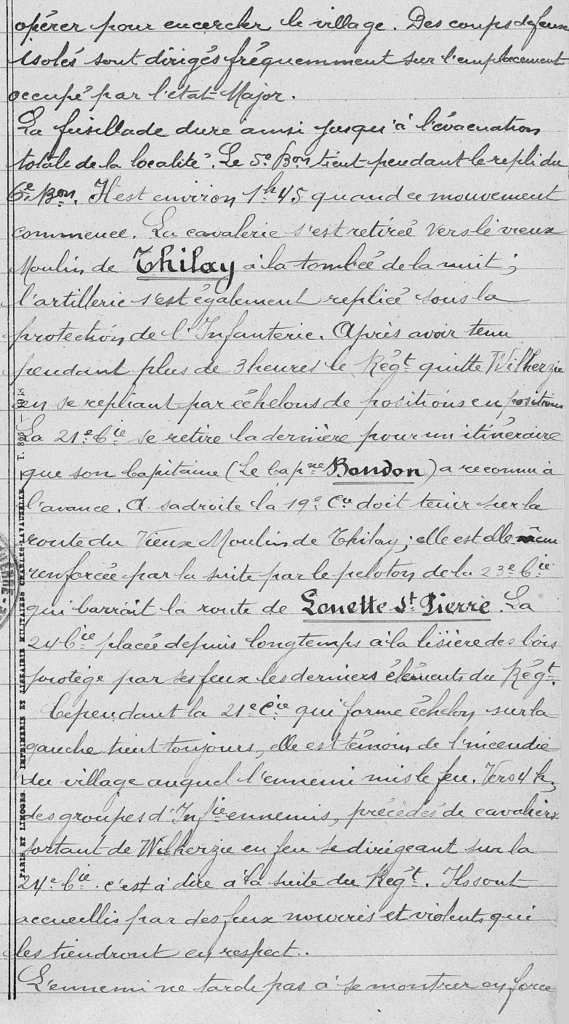 opérer pour encercler le village. Des coups de feux
isolés sont dirigés fréquemment sur l'emplacement
occupé par l'état-Major.
La fusillade dure ainsi jusqu'à l'évacuation
totale de la localité. Le 5e Bon tient pendant le repli du
6e Bon. Il est environ 1h45 quand ce mouvement
commence. La cavalerie s'est retirée vers le vieux
Moulin de Thilay à la tombée de la nuit ;
l'artillerie s'est également repliée sous la
protection de l'Infanterie. Après avoir tenu
pendant plus de 3 heures le Régt quitte Wilherzie
en se repliant par échelons de positions en positions
La 21e Cie se retire la dernière pour un itinéraire
que son Capitaine (Le Capne Bondon) a reconnu à
l'avance. A sa droite la 19e Cie doit tenir sur la
route du Vieux Moulin de Thilay ; elle est elle même
renforcée par la suite par le peloton de la 23e Cie
qui barrait la route de Louette St Pierre. La
24 Cie placée depuis longtemps à la lisière des bois
protège par ses feux les derniers éléments du Régt.
Cependant la 21e Cie qui forme échelon sur la
gauche tient toujours, elle est témoin de l'incendie
du village auquel l'ennemi mis le feu. Vers 4 h,
des groupes d'Infie ennemis, précédés de cavaliers
sortant de Wilherzie en feu se dirigeant sur la
24e Cie c'est à dire à la suite du Régt. Ils sont
accueillis par des feux nourris et violents qui
les tiendront en respect..
L'ennemi ne tarde pas à se montrer en force
PARIS ET LIMOGES. IMPRIMERIE ET LIBRAIRIE MILITAIRES CHARLES-LAVAUZELLE